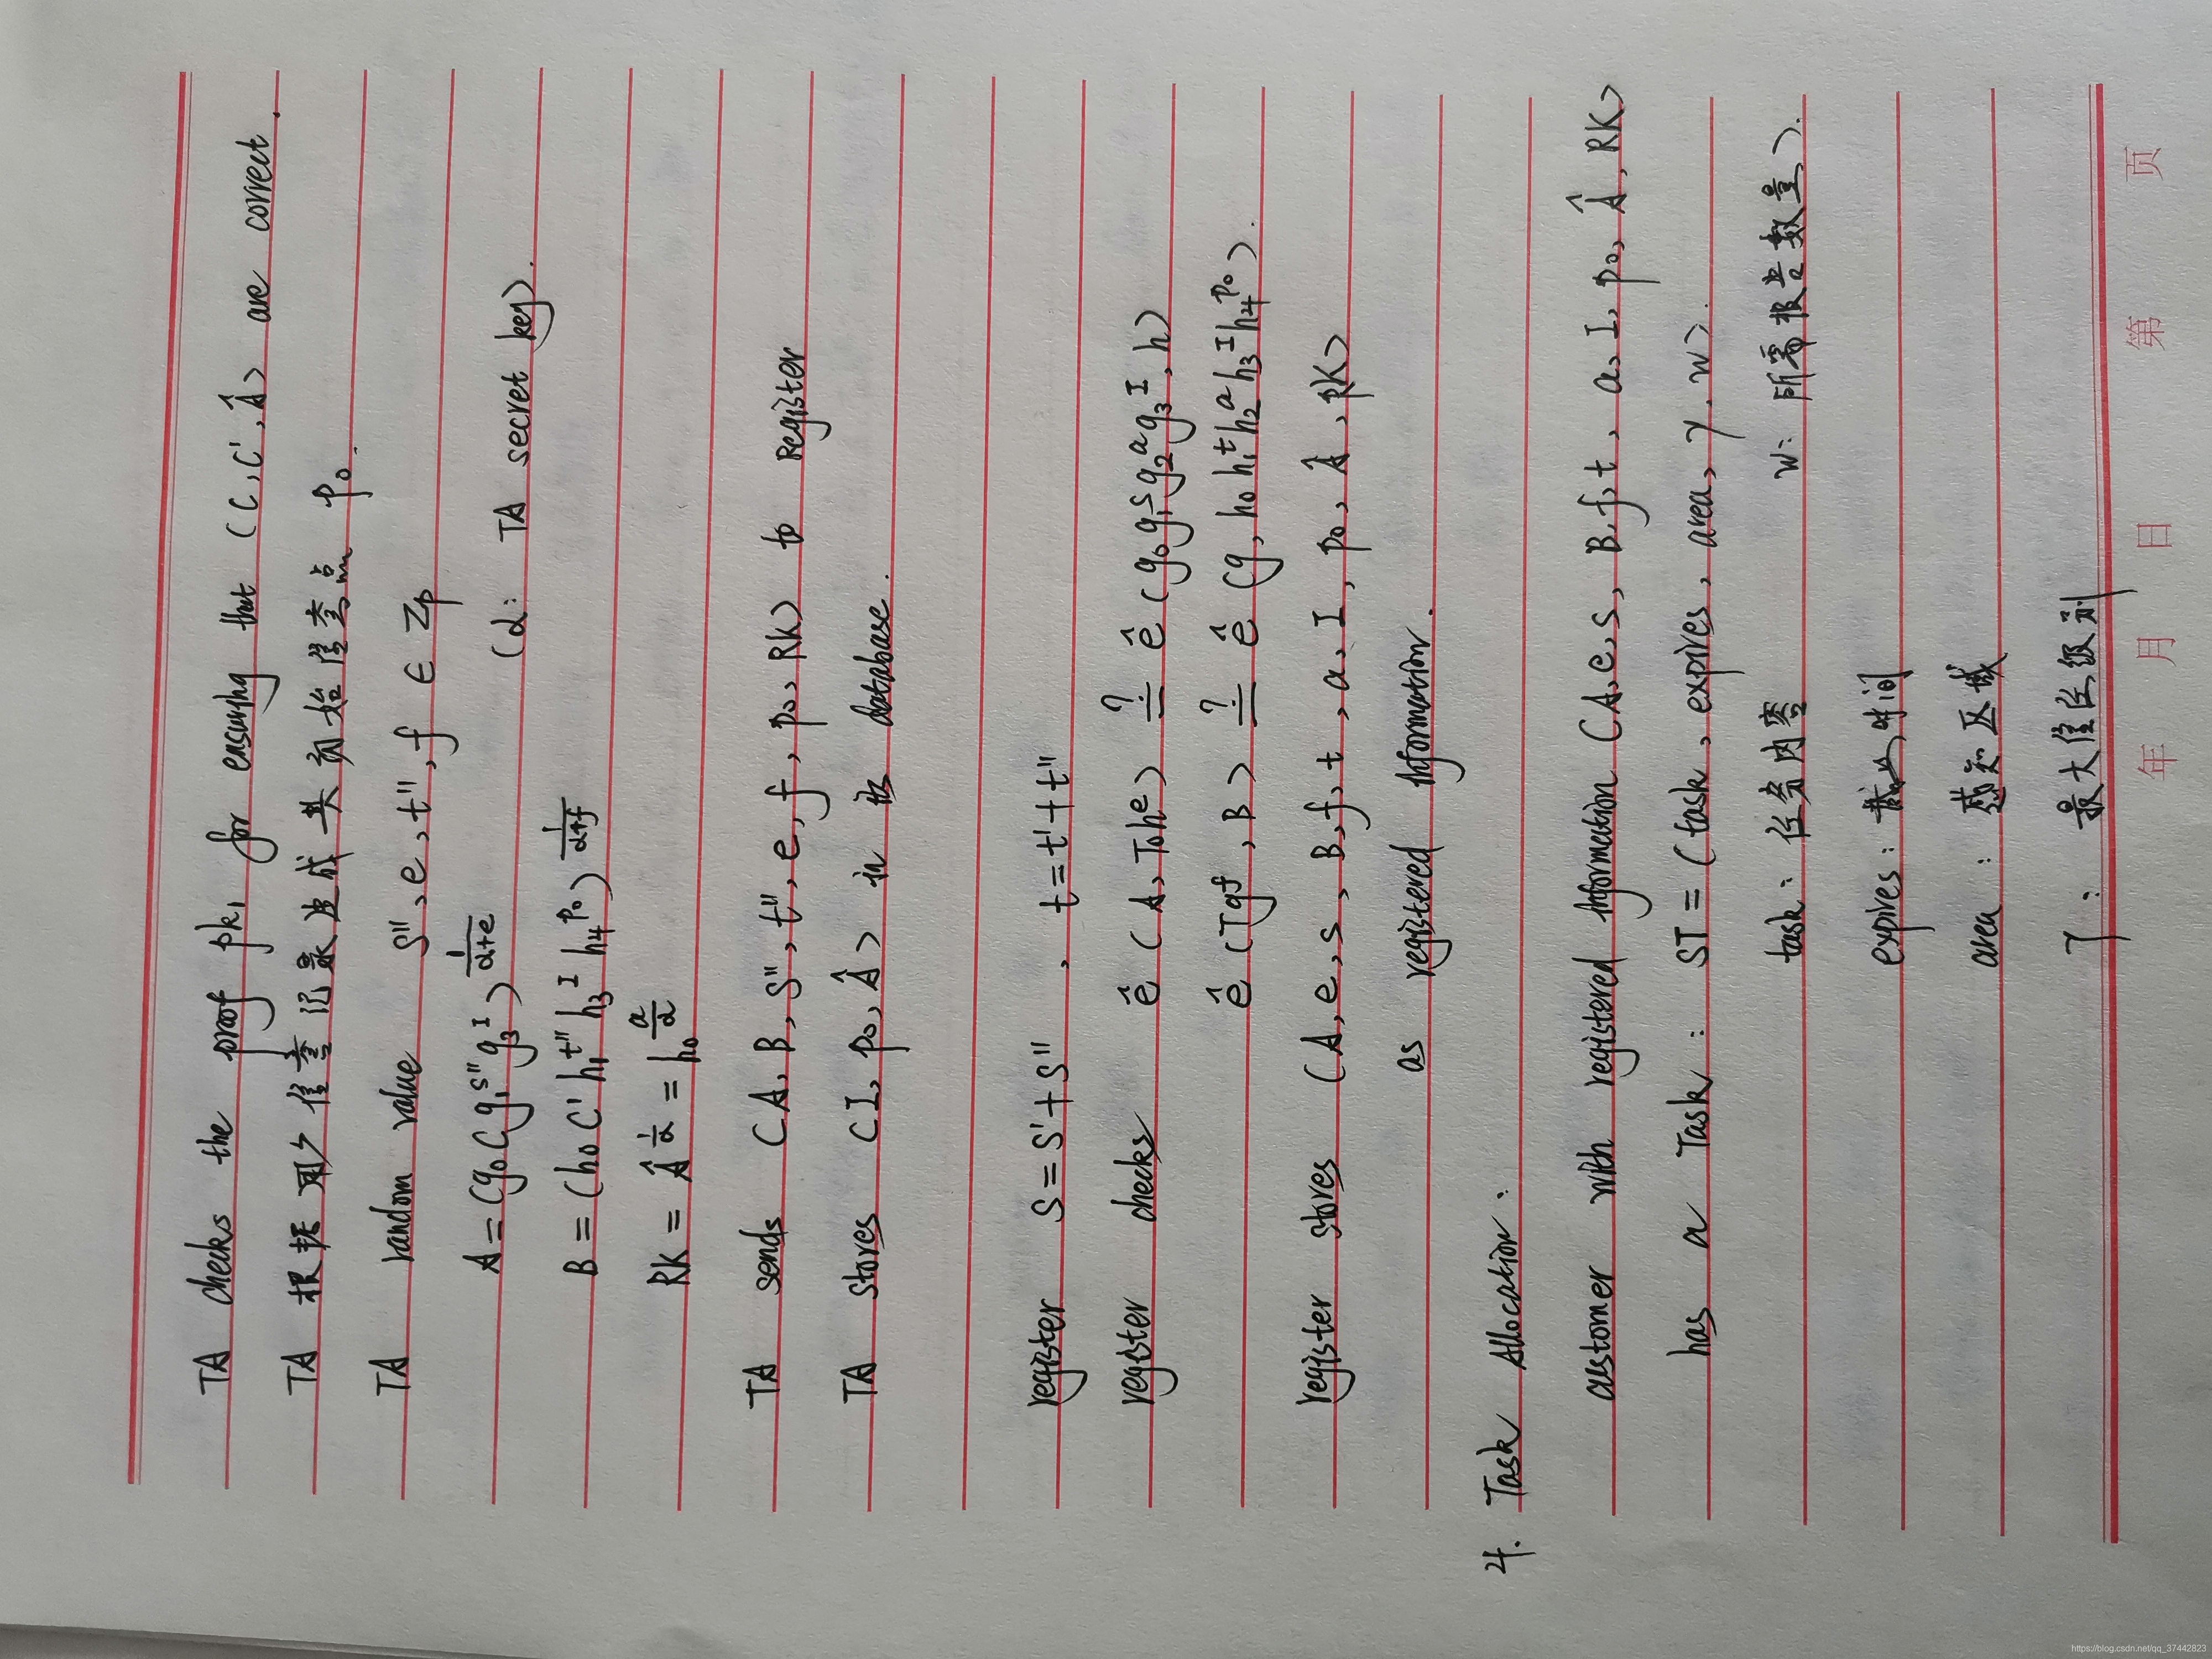 TA checks the proof pk₁ for ensuring that (C, C', Â) are correct.
TA 根据 信查记录 生成 其初始信查点 p₀.
TA random value s'', e, t'', f ∈ Zp
A = (g₀ C g₁^s'' g₃^I)^(1/(α+e)) (α: TA secret key).
B = (h₀ C' h₁^t'' h₃^I h₄^p₀)^(1/(α+f))
RK = Â^(1/α) = h₀^(a/α)
TA sends (A, B, s'', t'', e, f, p₀, RK) to register
TA stores (I, p₀, Â) in its database.
register s = s' + s'' , t = t' + t''
register checks ê (A, T₀h^e) ≟ ê (g₀g₁^s g₂^a g₃^I, h)
ê (Tg^f, B) ≟ ê (g, h₀h₁^t h₂^a h₃^I h₄^p₀).
register stores (A, e, s, B, f, t, a, I, p₀, Â, RK)
as registered information.
4. Task Allocation:
customer with registered information (A, e, s, B, f, t, a, I, p₀, Â, RK)
has a Task: ST = (task, expires, area, γ, w).
task: 任务内容 w: 所需报告数量)
expires: 截止时间
area: 感知区域
γ: 最大信任级别
年 月 日 第 页
https://blog.csdn.net/qq_37442823